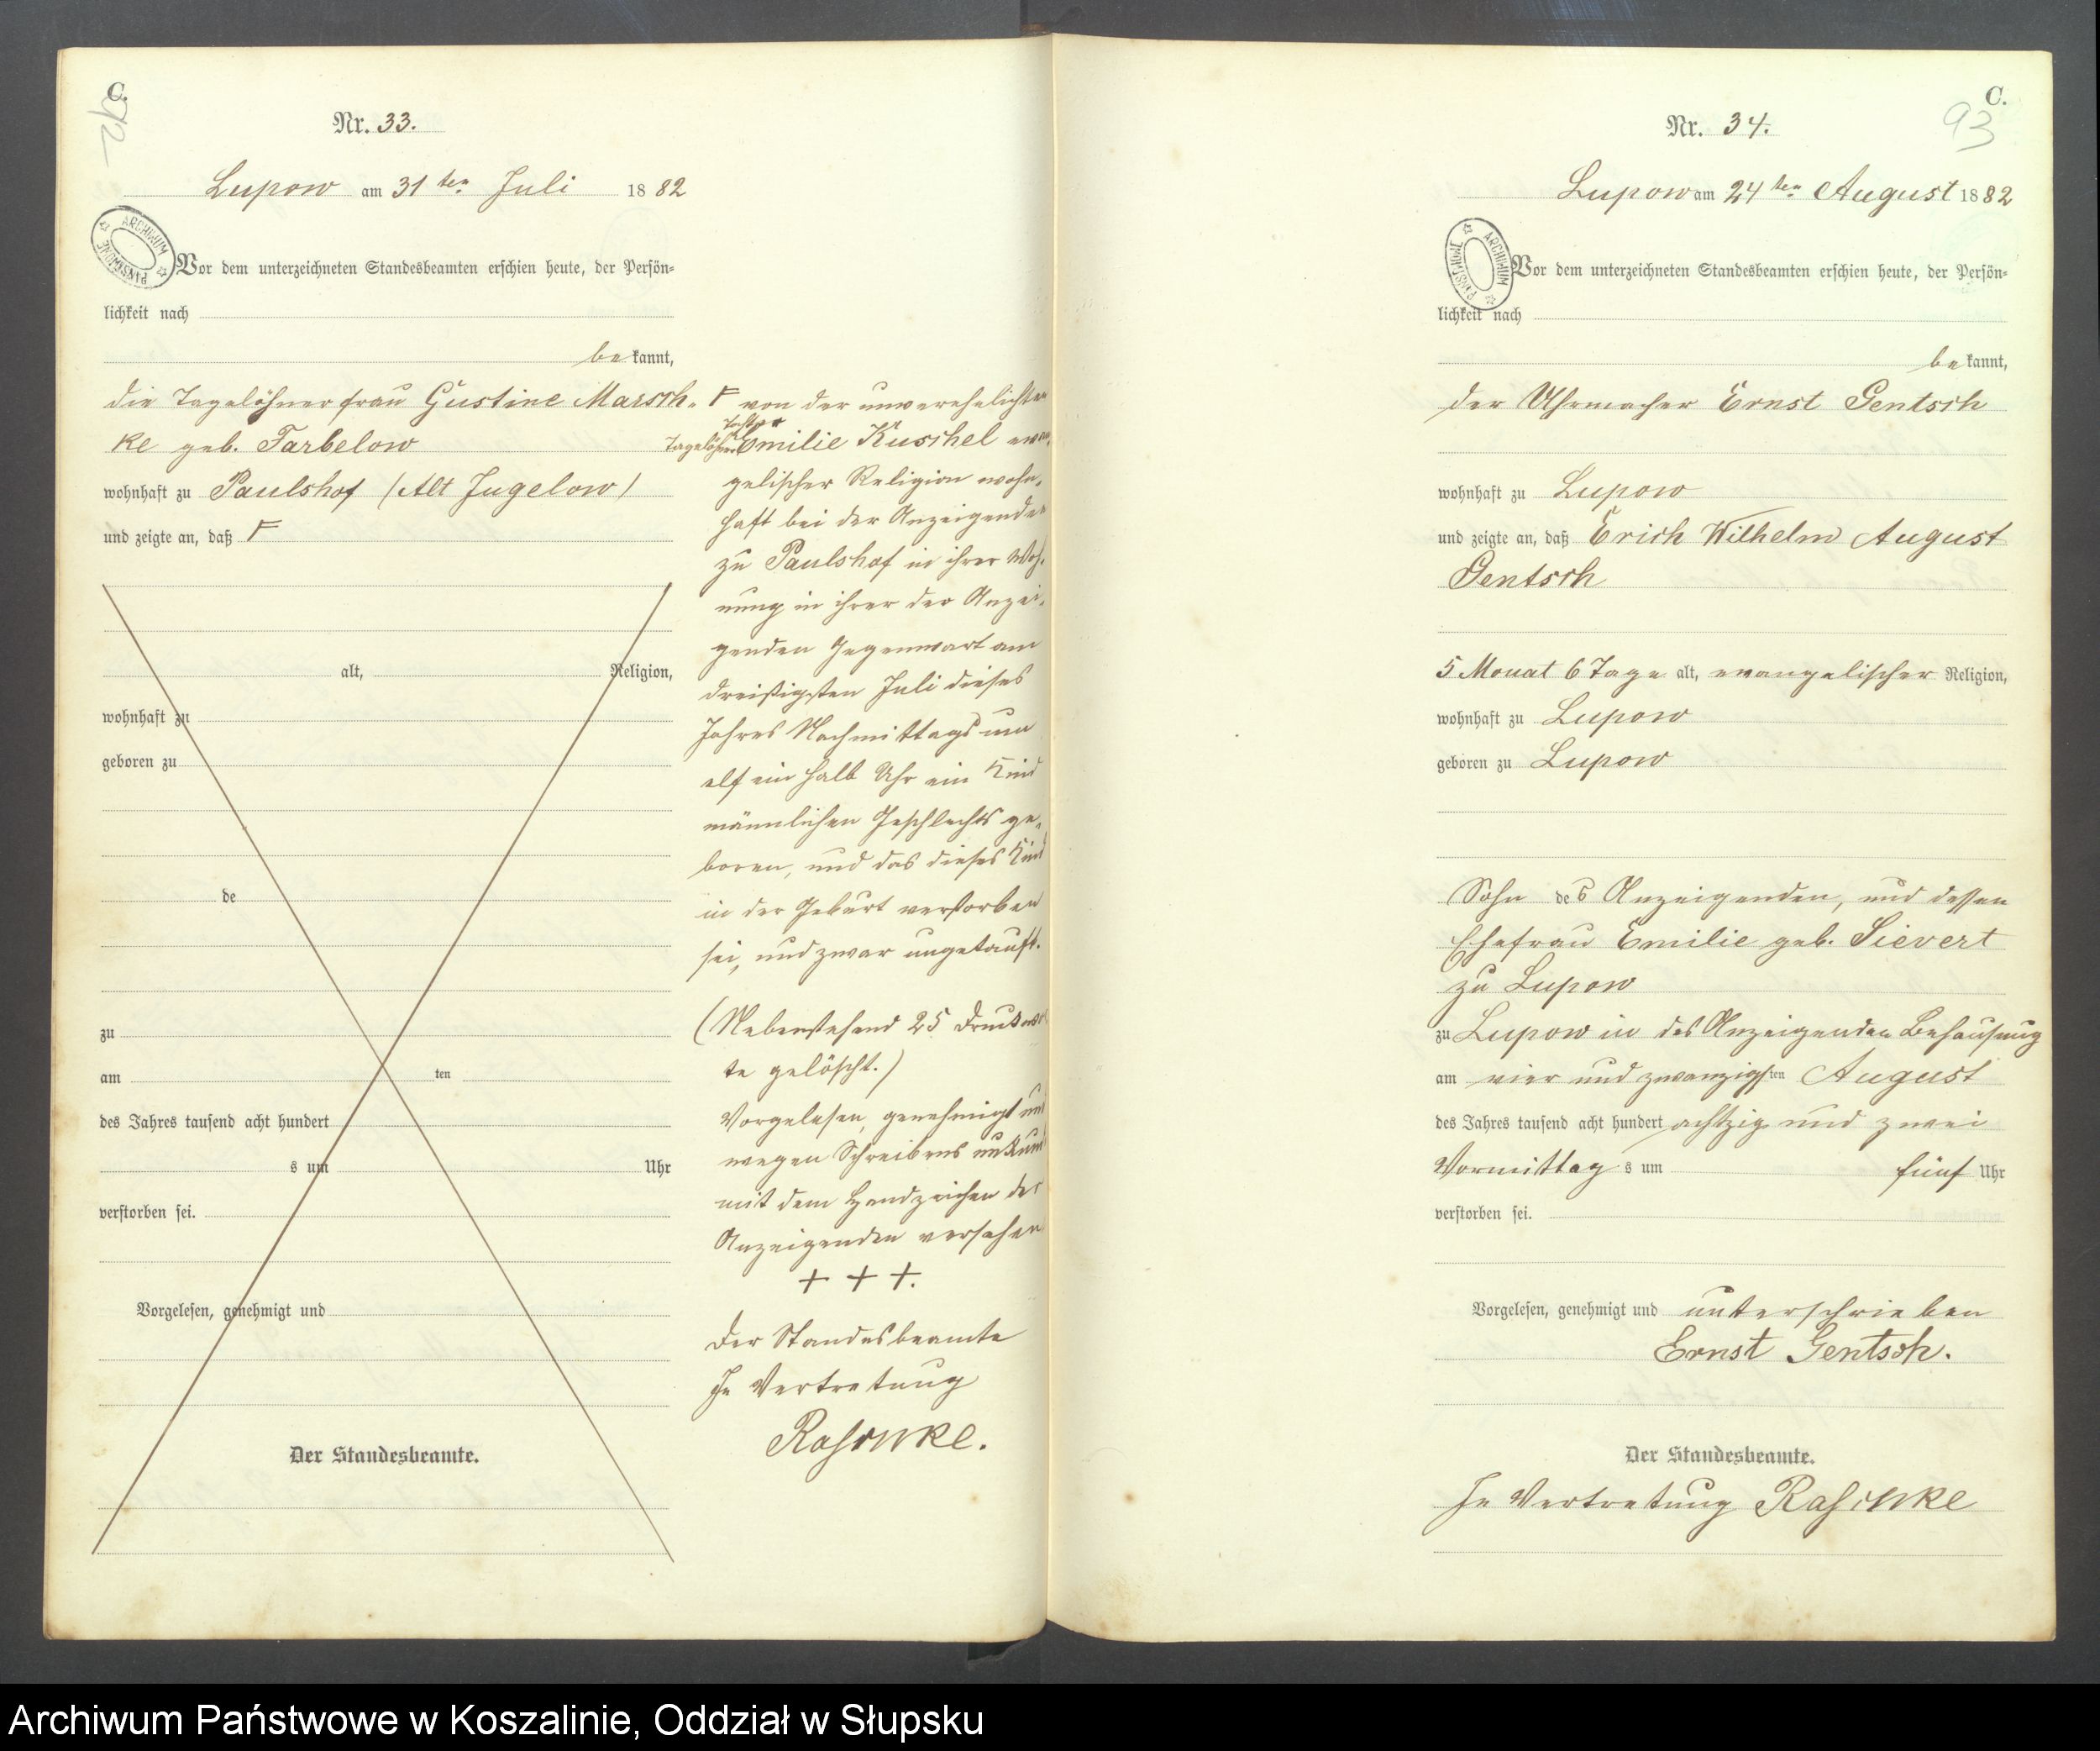 C.
92
Nr. 33.
Lupow am 31ten Juli 1882
ARCHIWUM PAŃSTWOWE
Vor dem unterzeichneten Standesbeamten erschien heute, der Persön-
lichkeit nach
bekannt,
die Tagelöhnerfrau Gustine Marsch-
ke geb. Tarbelow
wohnhaft zu Paulshof (Alt Jugelow)
und zeigte an, daß F
alt, Religion,
wohnhaft zu
geboren zu
de
zu
am ten
des Jahres tausend acht hundert
s um Uhr
verstorben sei.
Vorgelesen, genehmigt und
Der Standesbeamte.
F von der unverehelichten
Tagelöhner Tochter Emilie Kuschel evan-
gelischer Religion wohn-
haft bei der Anzeigenden
zu Paulshof in ihrer Woh-
nung in ihrer der Anzei-
genden Gegenwart am
dreißigsten Juli dieses
Jahres Nachmittags um
elf ein halb Uhr ein Kind
männlichen Geschlechts ge-
boren, und das dieses Kind
in der Geburt verstorben
sei, und zwar ungetauft.
(Nebenstehend 25 Druckwor
te gelöscht.)
Vorgelesen, genehmigt und
wegen Schreibens unkund
mit dem Handzeichen der
Anzeigenden versehen
+ + +.
Der Standesbeamte
In Vertretung
Raschke.
C.
93
Nr. 34.
Lupow am 24ten August 1882
ARCHIWUM PAŃSTWOWE
Vor dem unterzeichneten Standesbeamten erschien heute, der Persön-
lichkeit nach
bekannt,
der Uhrmacher Ernst Gentsch
wohnhaft zu Lupow
und zeigte an, daß Erich Wilhelm August
Gentsch
5 Monat 6 Tage alt, evangelischer Religion,
wohnhaft zu Lupow
geboren zu Lupow
Sohn des Anzeigenden, und dessen
Ehefrau Emilie geb. Sievert
zu Lupow
zu Lupow in des Anzeigenden Behausung
am vier und zwanzigsten August
des Jahres tausend acht hundert achtzig und zwei
Vormittags um fünf Uhr
verstorben sei.
Vorgelesen, genehmigt und unterschrieben
Ernst Gentsch.
Der Standesbeamte.
In Vertretung Raschke
Archiwum Państwowe w Koszalinie, Oddział w Słupsku